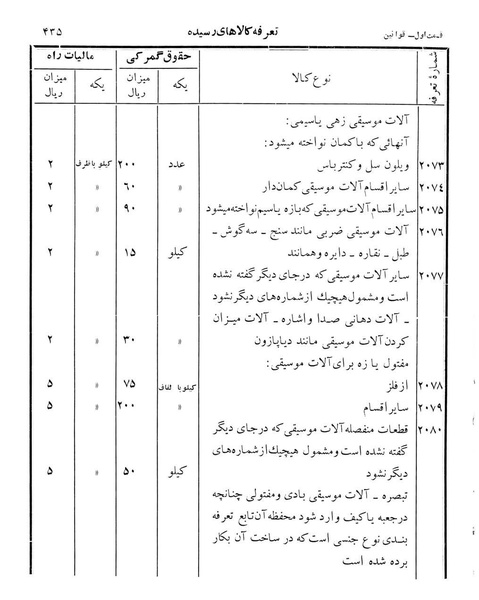 قسمت اول - قوانین تعرفه کالاهای رسیده ۴۳۵
شمارهٔ تعرفه نوع کالا حقوق گمرکی مالیات راه
یکه میزان ریال یکه میزان ریال
آلات موسیقی زهی یاسیمی:
آنهائی که باکمان نواخته میشود:
۲۰۷۳ ویلون سل و کنترباس عدد ۲۰۰ کیلو باظرف ۲
۲۰۷٤ سایر اقسام آلات موسیقی کمان‌دار » ۶۰ » ۲
۲۰۷۵ سایر اقسام آلات موسیقی که بازه یاسیم نواخته میشود » ۹۰ » ۲
۲۰۷۶ آلات موسیقی ضربی مانند سنج - سه گوش -
طبل - نقاره - دایره و همانند کیلو ۱۵ » ۲
۲۰۷۷ سایر آلات موسیقی که درجای دیگر گفته نشده
است و مشمول هیچیك از شماره‌های دیگر نشود
- آلات دهانی صدا و اشاره - آلات میزان
کردن آلات موسیقی مانند دیاپازون » ۳۰ » ۲
مفتول یا زه برای آلات موسیقی:
۲۰۷۸ از فلز کیلو با لفاف ۷۵ » ۵
۲۰۷۹ سایر اقسام » ۲۰۰ » ۵
۲۰۸۰ قطعات منفصله آلات موسیقی که درجای دیگر
گفته نشده است و مشمول هیچیك از شماره‌های
دیگر نشود کیلو ۵۰ » ۵
تبصره - آلات موسیقی بادی و مفتولی چنانچه
درجعبه یا کیف وارد شود محفظه آن تابع تعرفه
بندی نوع جنسی است که در ساخت آن بکار
برده شده است